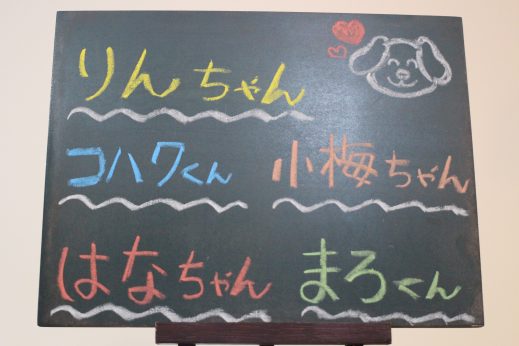 りんちゃん
コハクくん 小梅ちゃん
はなちゃん まろくん